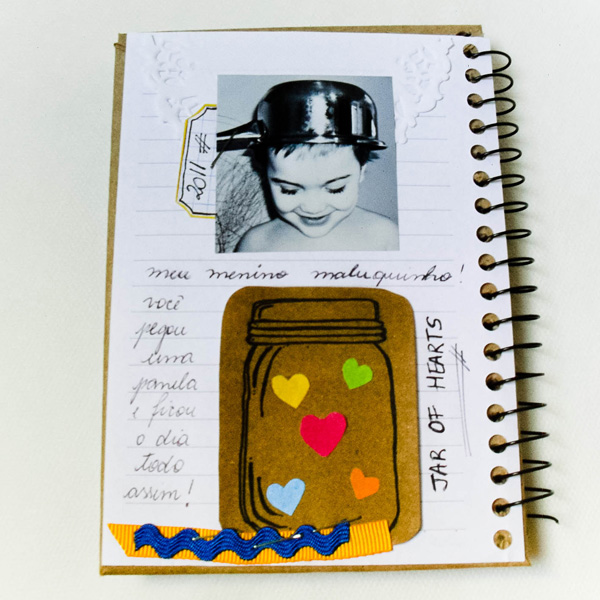 # 2011
meu menino maluquinho!
você
pegou
uma
panela
e ficou
o dia
todo
assim!
JAR OF HEARTS #